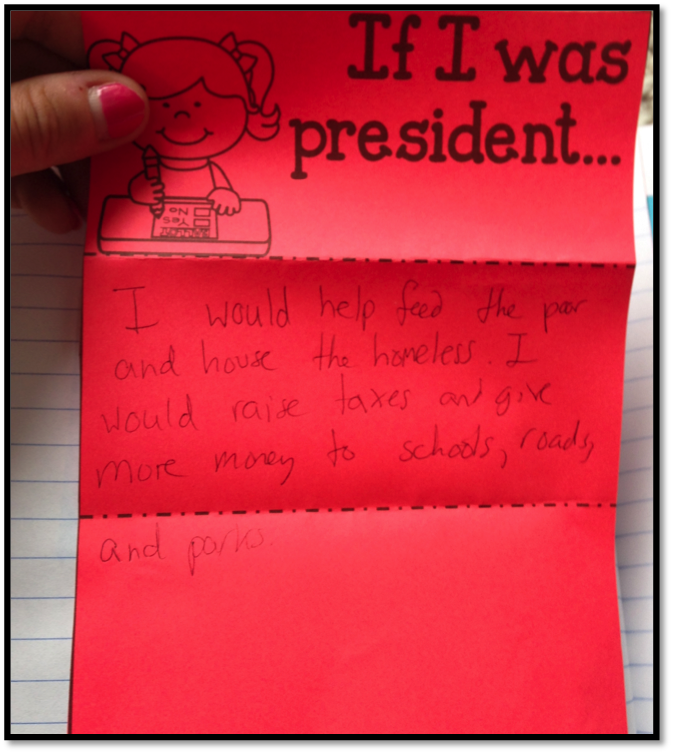 If I was
president...
No
Yes
I would help feed the poor
and house the homeless. I
would raise taxes and give
more money to schools, roads,
and parks.